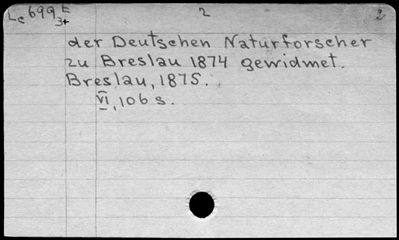 Lc 699 E 2 2
3+
der Deutschen Naturforscher
zu Breslau 1874 gewidmet.
Breslau, 1875.
VI, 106 s.